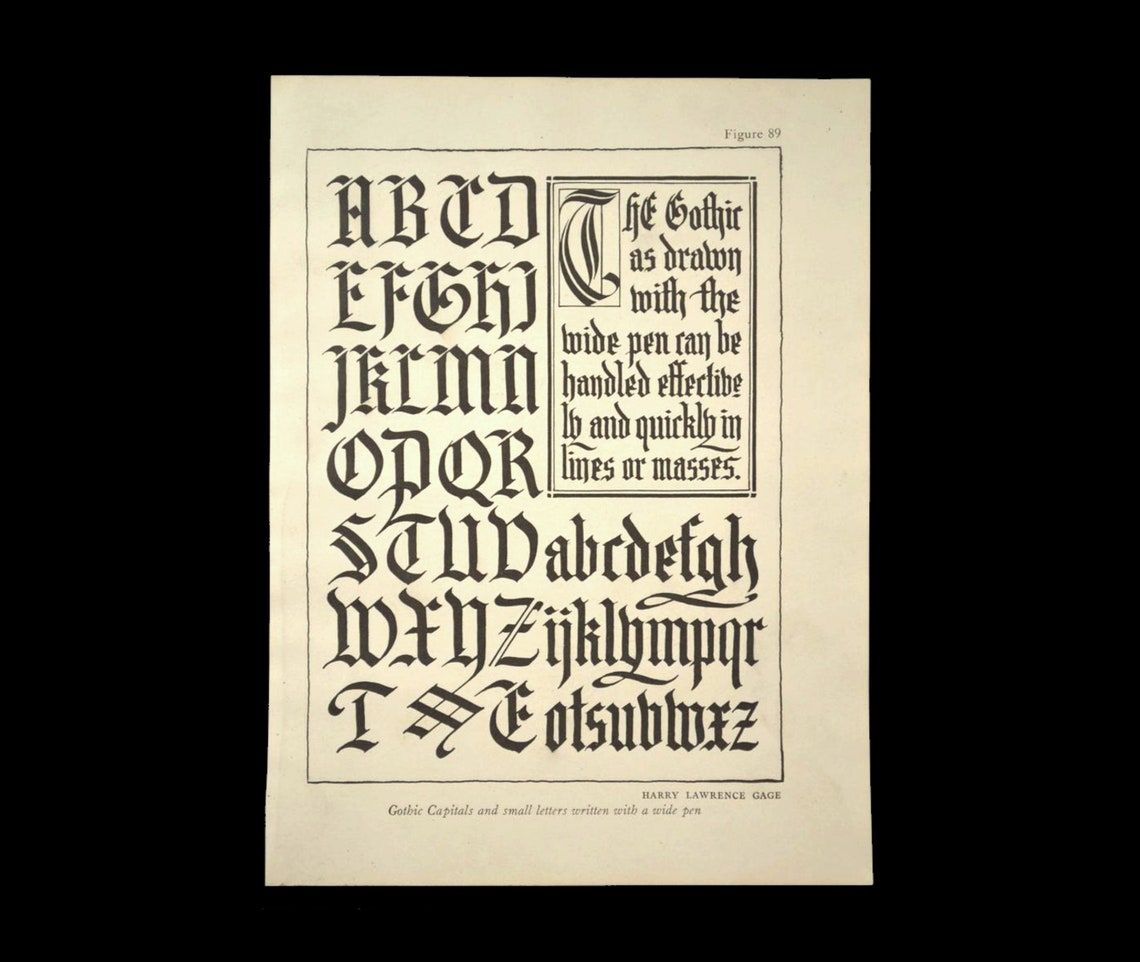 Figure 89
A B C D
E F G H I
J K L M N
O P Q R
S T U V
W X Y Z
T & E
The Gothic
as drawn
with the
wide pen can be
handled effective
ly and quickly in
lines or masses.
a b c d e f g h
i j k l y m p q r
o t s u v w x z
HARRY LAWRENCE GAGE
Gothic Capitals and small letters written with a wide pen